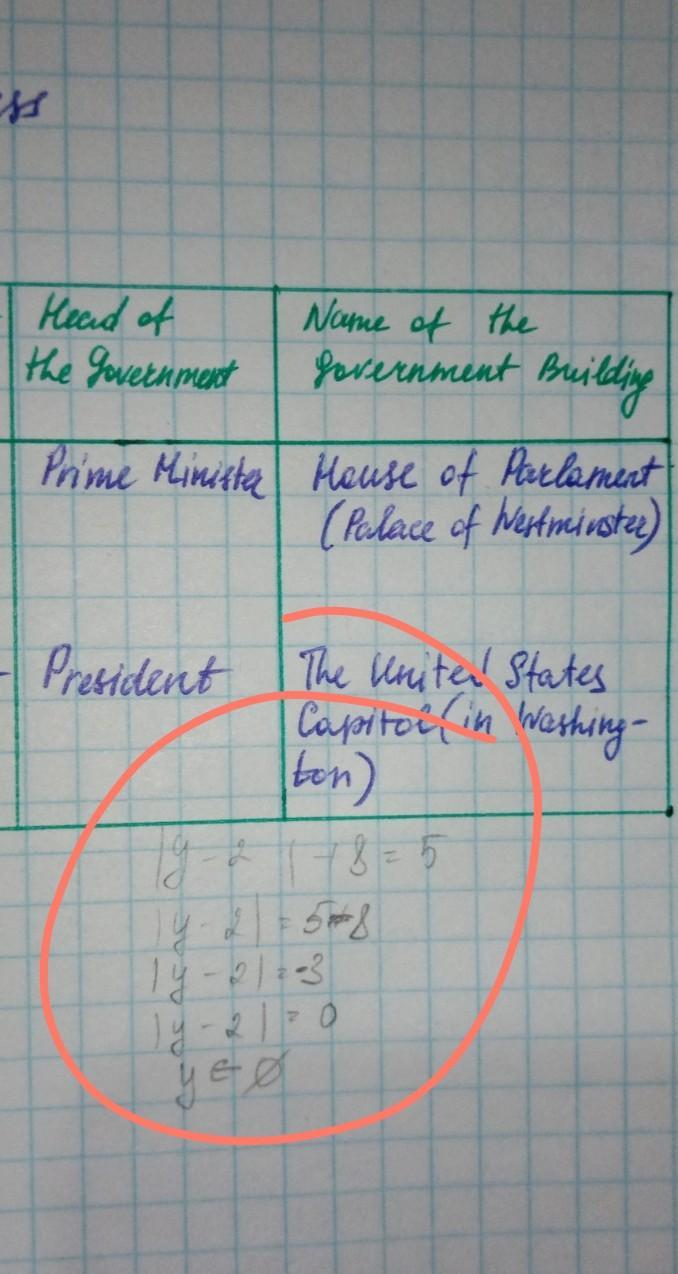 ess
Head of
the Government
Name of the
Government Building
Prime Minister
House of Parlament
(Palace of Westminster)
President
The United States
Capitol (in Washing-
ton)
|y - 2 | + 8 = 5
|y - 2| = 5 - 8
|y - 2| = -3
|y - 2| = 0
y ∈ ∅